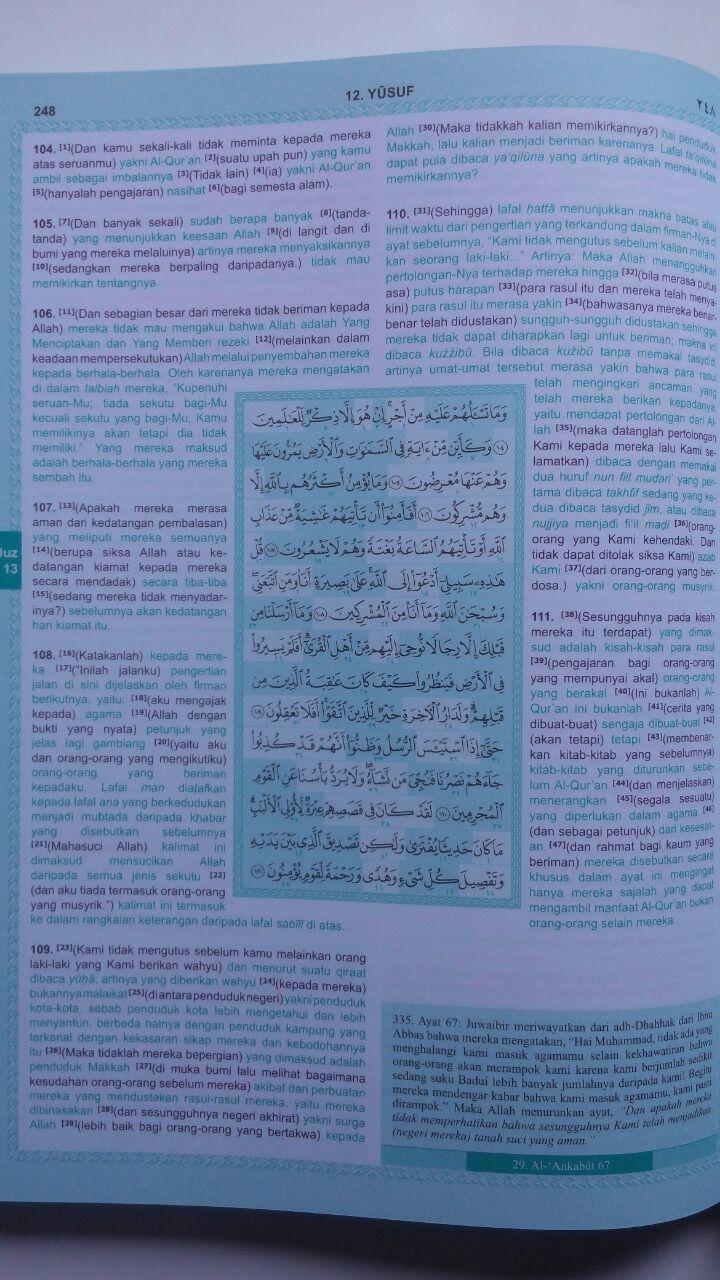 248
12. YŪSUF
٢٤٨
104. [1](Dan kamu sekali-kali tidak meminta kepada mereka
atas seruanmu) yakni Al-Qur'an [2](suatu upah pun) yang kamu
ambil sebagai imbalannya [3](Tidak lain) [4](ia) yakni Al-Qur'an
[5](hanyalah pengajaran) nasihat [6](bagi semesta alam).
105. [7](Dan banyak sekali) sudah berapa banyak [8](tanda-
tanda) yang menunjukkan keesaan Allah [9](di langit dan di
bumi yang mereka melaluinya) artinya mereka menyaksikannya
[10](sedangkan mereka berpaling daripadanya.) tidak mau
memikirkan tentangnya.
106. [11](Dan sebagian besar dari mereka tidak beriman kepada
Allah) mereka tidak mau mengakui bahwa Allah adalah Yang
Menciptakan dan Yang Memberi rezeki [12](melainkan dalam
keadaan mempersekutukan) Allah melalui penyembahan mereka
kepada berhala-berhala. Oleh karenanya mereka mengatakan
di dalam talbiah mereka, "Kupenuhi
seruan-Mu; tiada sekutu bagi-Mu
kecuali sekutu yang bagi-Mu; Kamu
memilikinya akan tetapi dia tidak
memiliki." Yang mereka maksud
adalah berhala-berhala yang mereka
sembah itu.
107. [13](Apakah mereka merasa
aman dari kedatangan pembalasan)
yang meliputi mereka semuanya
[14](berupa siksa Allah atau ke-
datangan kiamat kepada mereka
secara mendadak) secara tiba-tiba
[15](sedang mereka tidak menyadar-
inya?) sebelumnya akan kedatangan
hari kiamat itu.
Juz
13
108. [16](Katakanlah) kepada mere-
ka [17]("Inilah jalanku) pengertian
jalan di sini dijelaskan oleh firman
berikutnya; yaitu: [18](aku mengajak
kepada) agama [19](Allah dengan
bukti yang nyata) petunjuk yang
jelas lagi gamblang [20](yaitu aku
dan orang-orang yang mengikutiku)
orang-orang yang beriman
kepadaku. Lafal man diatafkan
kepada lafal ana yang berkedudukan
menjadi mubtada daripada khabar
yang disebutkan sebelumnya
[21](Mahasuci Allah) kalimat ini
dimaksud mensucikan Allah
daripada semua jenis sekutu [22]
(dan aku tiada termasuk orang-orang
yang musyrik.") kalimat ini termasuk
ke dalam rangkaian keterangan daripada lafal sabīlī di atas.
109. [23](Kami tidak mengutus sebelum kamu melainkan orang
laki-laki yang Kami berikan wahyu) dan menurut suatu qiraat
dibaca yūḥā; artinya yang diberikan wahyu [24](kepada mereka)
bukannya malaikat [25](di antara penduduk negeri) yakni penduduk
kota-kota, sebab penduduk kota lebih mengetahui dan lebih
menyantun, berbeda halnya dengan penduduk kampung yang
terkenal dengan kekasaran sikap mereka dan kebodohannya
itu [26](Maka tidaklah mereka bepergian) yang dimaksud adalah
penduduk Makkah [27](di muka bumi lalu melihat bagaimana
kesudahan orang-orang sebelum mereka) akibat dari perbuatan
mereka yang mendustakan rasul-rasul mereka, yaitu mereka
dibinasakan [28](dan sesungguhnya negeri akhirat) yakni surga
Allah [29](lebih baik bagi orang-orang yang bertakwa) kepada
وَمَا تَسْـَٔلُهُمْ عَلَيْهِ مِنْ أَجْرٍ إِنْ هُوَ إِلَّا ذِكْرٌ لِّلْعَٰلَمِينَ
١٠٤ وَكَأَيِّن مِّنْ ءَايَةٍ فِى السَّمَٰوَٰتِ وَالْأَرْضِ يَمُرُّونَ عَلَيْهَا
وَهُمْ عَنْهَا مُعْرِضُونَ ١٠٥ وَمَا يُؤْمِنُ أَكْثَرُهُم بِاللَّهِ إِلَّا
وَهُم مُّشْرِكُونَ ١٠٦ أَفَأَمِنُوٓا۟ أَن تَأْتِيَهُمْ غَٰشِيَةٌ مِّنْ عَذَابِ
اللَّهِ أَوْ تَأْتِيَهُمُ السَّاعَةُ بَغْتَةً وَهُمْ لَا يَشْعُرُونَ ١٠٧ قُلْ
هَٰذِهِۦ سَبِيلِىٓ أَدْعُوٓا۟ إِلَى اللَّهِ عَلَىٰ بَصِيرَةٍ أَنَا۠ وَمَنِ اتَّبَعَنِى
وَسُبْحَٰنَ اللَّهِ وَمَآ أَنَا۠ مِنَ الْمُشْرِكِينَ ١٠٨ وَمَآ أَرْسَلْنَا مِن
قَبْلِكَ إِلَّا رِجَالًا نُّوحِىٓ إِلَيْهِم مِّنْ أَهْلِ الْقُرَىٰٓ أَفَلَمْ يَسِيرُوا۟
فِى الْأَرْضِ فَيَنظُرُوا۟ كَيْفَ كَانَ عَٰقِبَةُ الَّذِينَ مِن
قَبْلِهِمْ وَلَدَارُ الْآخِرَةِ خَيْرٌ لِّلَّذِينَ اتَّقَوْا۟ أَفَلَا تَعْقِلُونَ ١٠٩
حَتَّىٰٓ إِذَا اسْتَيْـَٔسَ الرُّسُلُ وَظَنُّوٓا۟ أَنَّهُمْ قَدْ كُذِبُوا۟
جَآءَهُمْ نَصْرُنَا فَنُجِّىَ مَن نَّشَآءُ وَلَا يُرَدُّ بَأْسُنَا عَنِ الْقَوْمِ
الْمُجْرِمِينَ ١١٠ لَقَدْ كَانَ فِى قَصَصِهِمْ عِبْرَةٌ لِّأُو۟لِى الْأَلْبَٰبِ
مَا كَانَ حَدِيثًا يُفْتَرَىٰ وَلَٰكِن تَصْدِيقَ الَّذِى بَيْنَ يَدَيْهِ
وَتَفْصِيلَ كُلِّ شَىْءٍ وَهُدًى وَرَحْمَةً لِّقَوْمٍ يُؤْمِنُونَ ١١١
Allah [30](Maka tidakkah kalian memikirkannya?) hai penduduk
Makkah, lalu kalian menjadi beriman karenanya. Lafal ta'qilūna
dapat pula dibaca ya'qilūna yang artinya apakah mereka tidak
memikirkannya?
110. [31](Sehingga) lafal ḥattā menunjukkan makna batas atau
limit waktu dari pengertian yang terkandung dalam firman-Nya di
ayat sebelumnya, "Kami tidak mengutus sebelum kalian melain-
kan seorang laki-laki..." Artinya: Maka Allah menangguhkan
pertolongan-Nya terhadap mereka hingga [32](bila merasa putus
asa) putus harapan [33](para rasul itu dan mereka telah menya-
kini) para rasul itu merasa yakin [34](bahwasanya mereka benar-
benar telah didustakan) sungguh-sungguh didustakan sehingga
mereka tidak dapat diharapkan lagi untuk beriman; makna ini
dibaca kużżibū. Bila dibaca kużibū tanpa memakai tasydid,
artinya umat-umat tersebut merasa yakin bahwa para rasul
telah mengingkari ancaman yang
telah mereka berikan kepadanya
yaitu mendapat pertolongan dari Al-
lah [35](maka datanglah pertolongan
Kami kepada mereka lalu Kami se-
lamatkan) dibaca dengan memakai
dua huruf nun fiil muḍari' yang per-
tama dibaca takhfif sedang yang ke-
dua dibaca tasydid jīm, atau dibaca
nujjiya menjadi fi'il maḍi [36](orang-
orang yang Kami kehendaki. Dan
tidak dapat ditolak siksa Kami) azab
Kami [37](dari orang-orang yang ber-
dosa.) yakni orang-orang musyrik.
111. [38](Sesungguhnya pada kisah
mereka itu terdapat) yang dimak-
sud adalah kisah-kisah para rasul
[39](pengajaran bagi orang-orang
yang mempunyai akal) orang-orang
yang berakal [40](Ini bukanlah) Al-
Qur'an ini bukanlah [41](cerita yang
dibuat-buat) sengaja dibuat-buat [42]
(akan tetapi) tetapi [43](membenar-
kan kitab-kitab yang sebelumnya)
kitab-kitab yang diturunkan sebe-
lum Al-Qur'an [44](dan menjelaskan)
menerangkan [45](segala sesuatu)
yang diperlukan dalam agama [46]
(dan sebagai petunjuk) dari kesesat-
an [47](dan rahmat bagi kaum yang
beriman) mereka disebutkan secara
khusus dalam ayat ini mengingat
hanya mereka sajalah yang dapat
mengambil manfaat Al-Qur'an bukan
orang-orang selain mereka.
335. Ayat 67: Juwaibir meriwayatkan dari adh-Dhahhak dari Ibnu
Abbas bahwa mereka mengatakan, "Hai Muhammad, tidak ada yang
menghalangi kami masuk agamamu selain kekhawatiran bahwa
orang-orang akan merampok kami karena kami berjumlah sedikit
sedang suku Badui lebih banyak jumlahnya daripada kami! Begitu
mereka mendengar kabar bahwa kami masuk agamamu, kami pasti
dirampok." Maka Allah menurunkan ayat, "Dan apakah mereka
tidak memperhatikan bahwa sesungguhnya Kami telah menjadikan
(negeri mereka) tanah suci yang aman."
29. Al-'Ankabūt 67